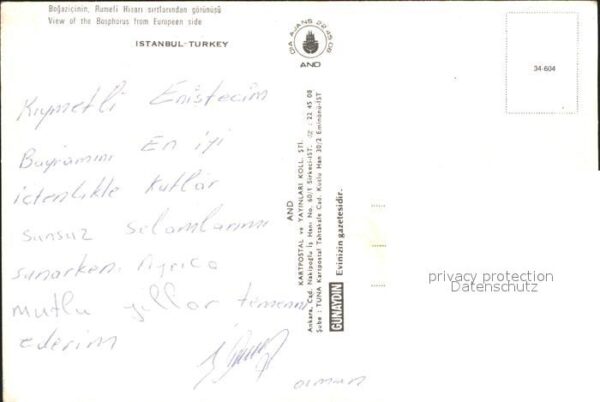 Boğaziçinin, Rumeli Hisarı sırtlarından görünüsü
View of the Bosphorus from European side
ISTANBUL-TURKEY
Kıymetli Eniştecim
Bayramını En iyi
içtenlikle kutlar
sonsuz selamlarımı
sunarken. Ayrıca
mutlu yıllar temenni
ederim
osman
AJANS 22 45 08
AND
AND
KARTPOSTAL ve YAYINLARI KOLL. ŞTİ.
Ankara Cad. Nakipoğlu İş Hanı No. 60/1 Sirkeci-İST. 22 45 08
Şube : TUNA Kartpostal Tahtakale Cad. Kutlu Han 30/2 Eminönü-İST
GÜNAYDIN Evinizin gazetesidir.
34-604
privacy protection
Datenschutz